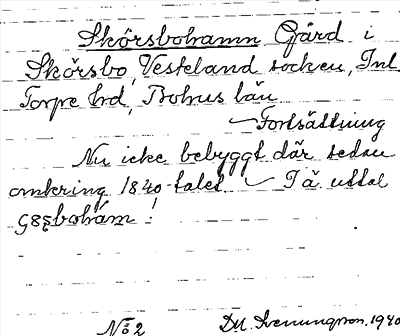 Skörsbohamn Gård i
Skörsbo, Vesteland socken, Inl.
Torpe hrd, Bohus län
Fortsättning
Nu icke bebyggt där sedan
omkring 1840-talet. I ä uttal
No 2 D. U. Svenungsson. 1940